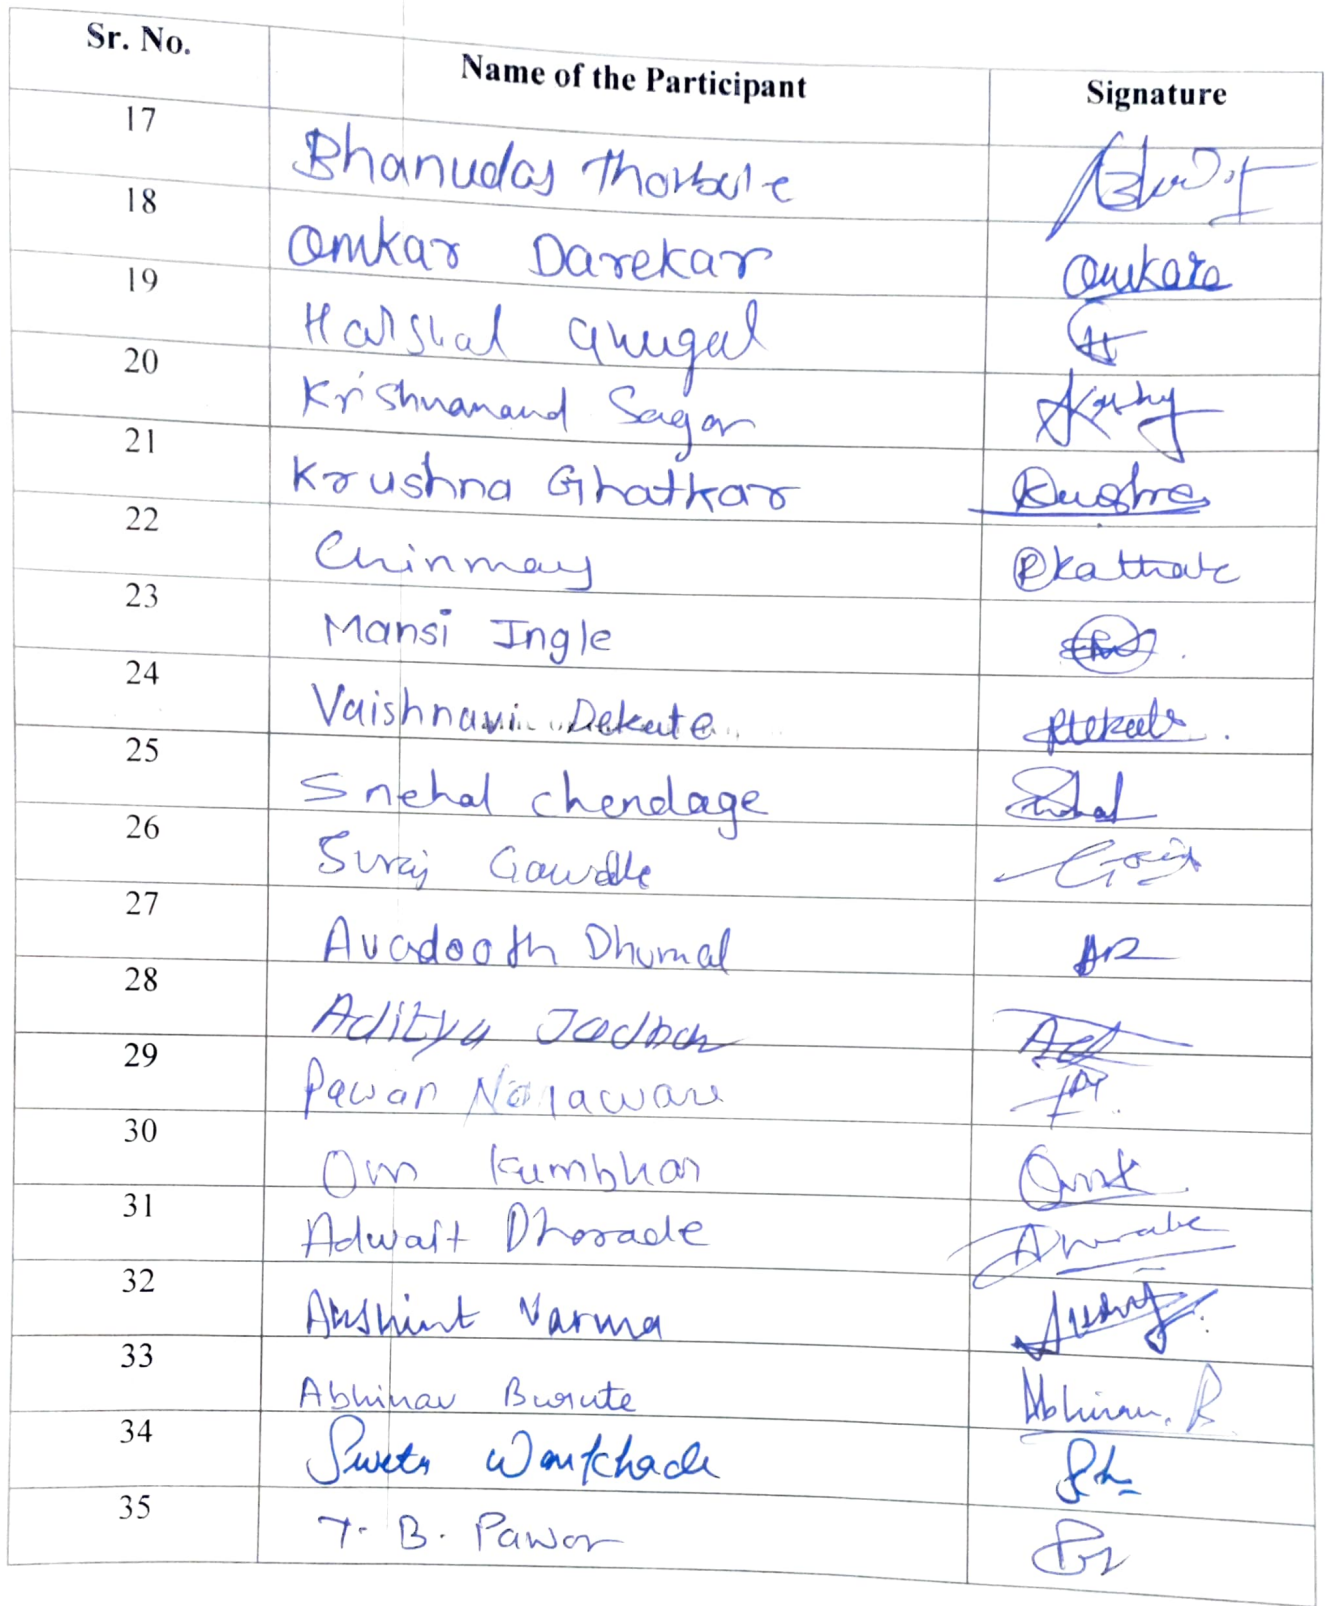 Sr. No. Name of the Participant Signature
17 Bhanudas Thorbule
18 Omkar Darekar Omkare
19 Harshal Ghugal
20 Krishnanand Sagar
21 Krushna Ghatkar Krushna
22 Chinmay Kathale
23 Mansi Ingle
24 Vaishnavi Dekate
25 Snehal chendage Snehal
26 Suraj
27 Avadooth Dhumal
28 Aditya Jadhav
29 Pawan
30 Om Kumbhar Omk
31 Adwait Dhorade
32 Varma
33 Abhinav Burute Abhinav. B
34 Sweta
35 T. B. Pawar